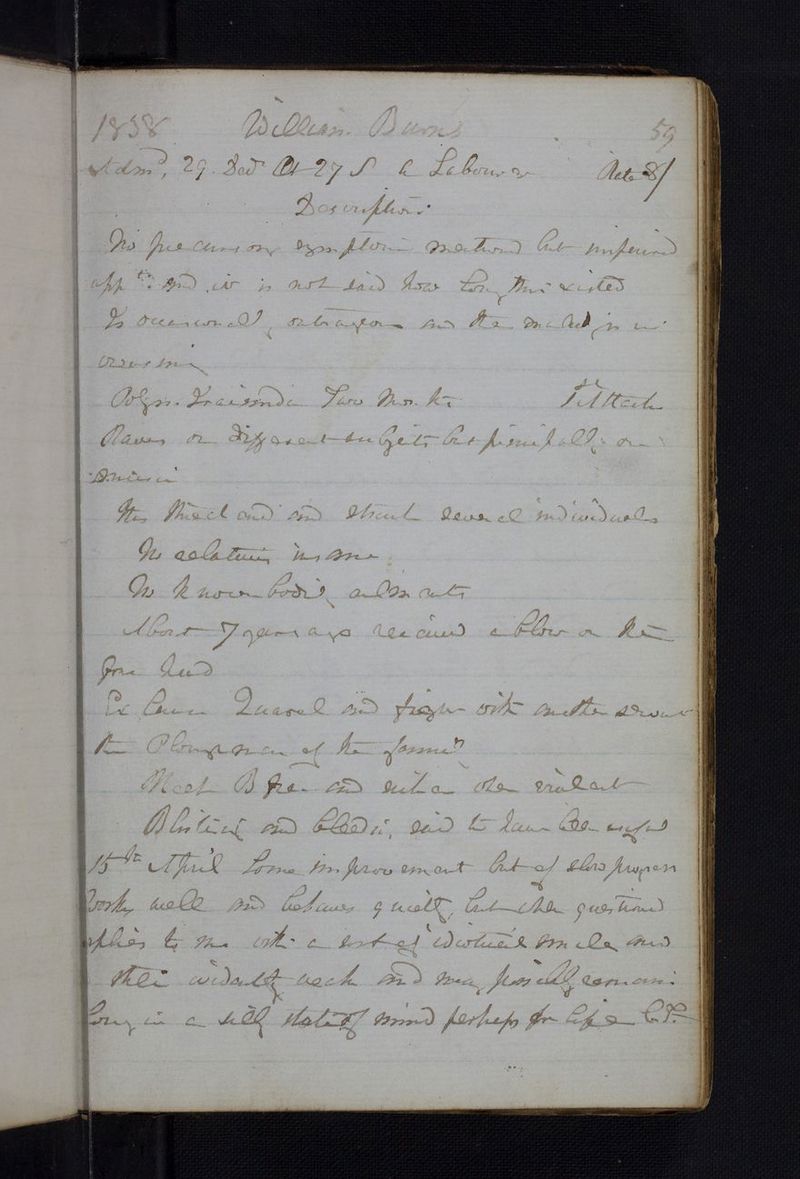 1838 William Burns 59
Admd, 29. Decr Æt 27 S a Labourer Rate 8/
Description
No precursory symptom mentiond but impaired
appte and it is not said how long this existed
Is occasional, outrageous and the malady is in
creasing
Two Months 1st Attack
Raves on different subjets but principally on
music
Has threatend and struck several individuals
No relations insane
No known bodily ailments
About 7 years ago received a blow on the
fore head
Ex Cause Quarrel and fight with another servant
the Ploughman of the farm
and when violent
Blistering and bleeding, said to have been useful
15th April Some improvement but of slow progress
Works well and behaves quietly, but when questioned
replies to me with a sort of idiotical smile and
evidently weak and may possibly remain
long in a silly state of mind perhaps for life